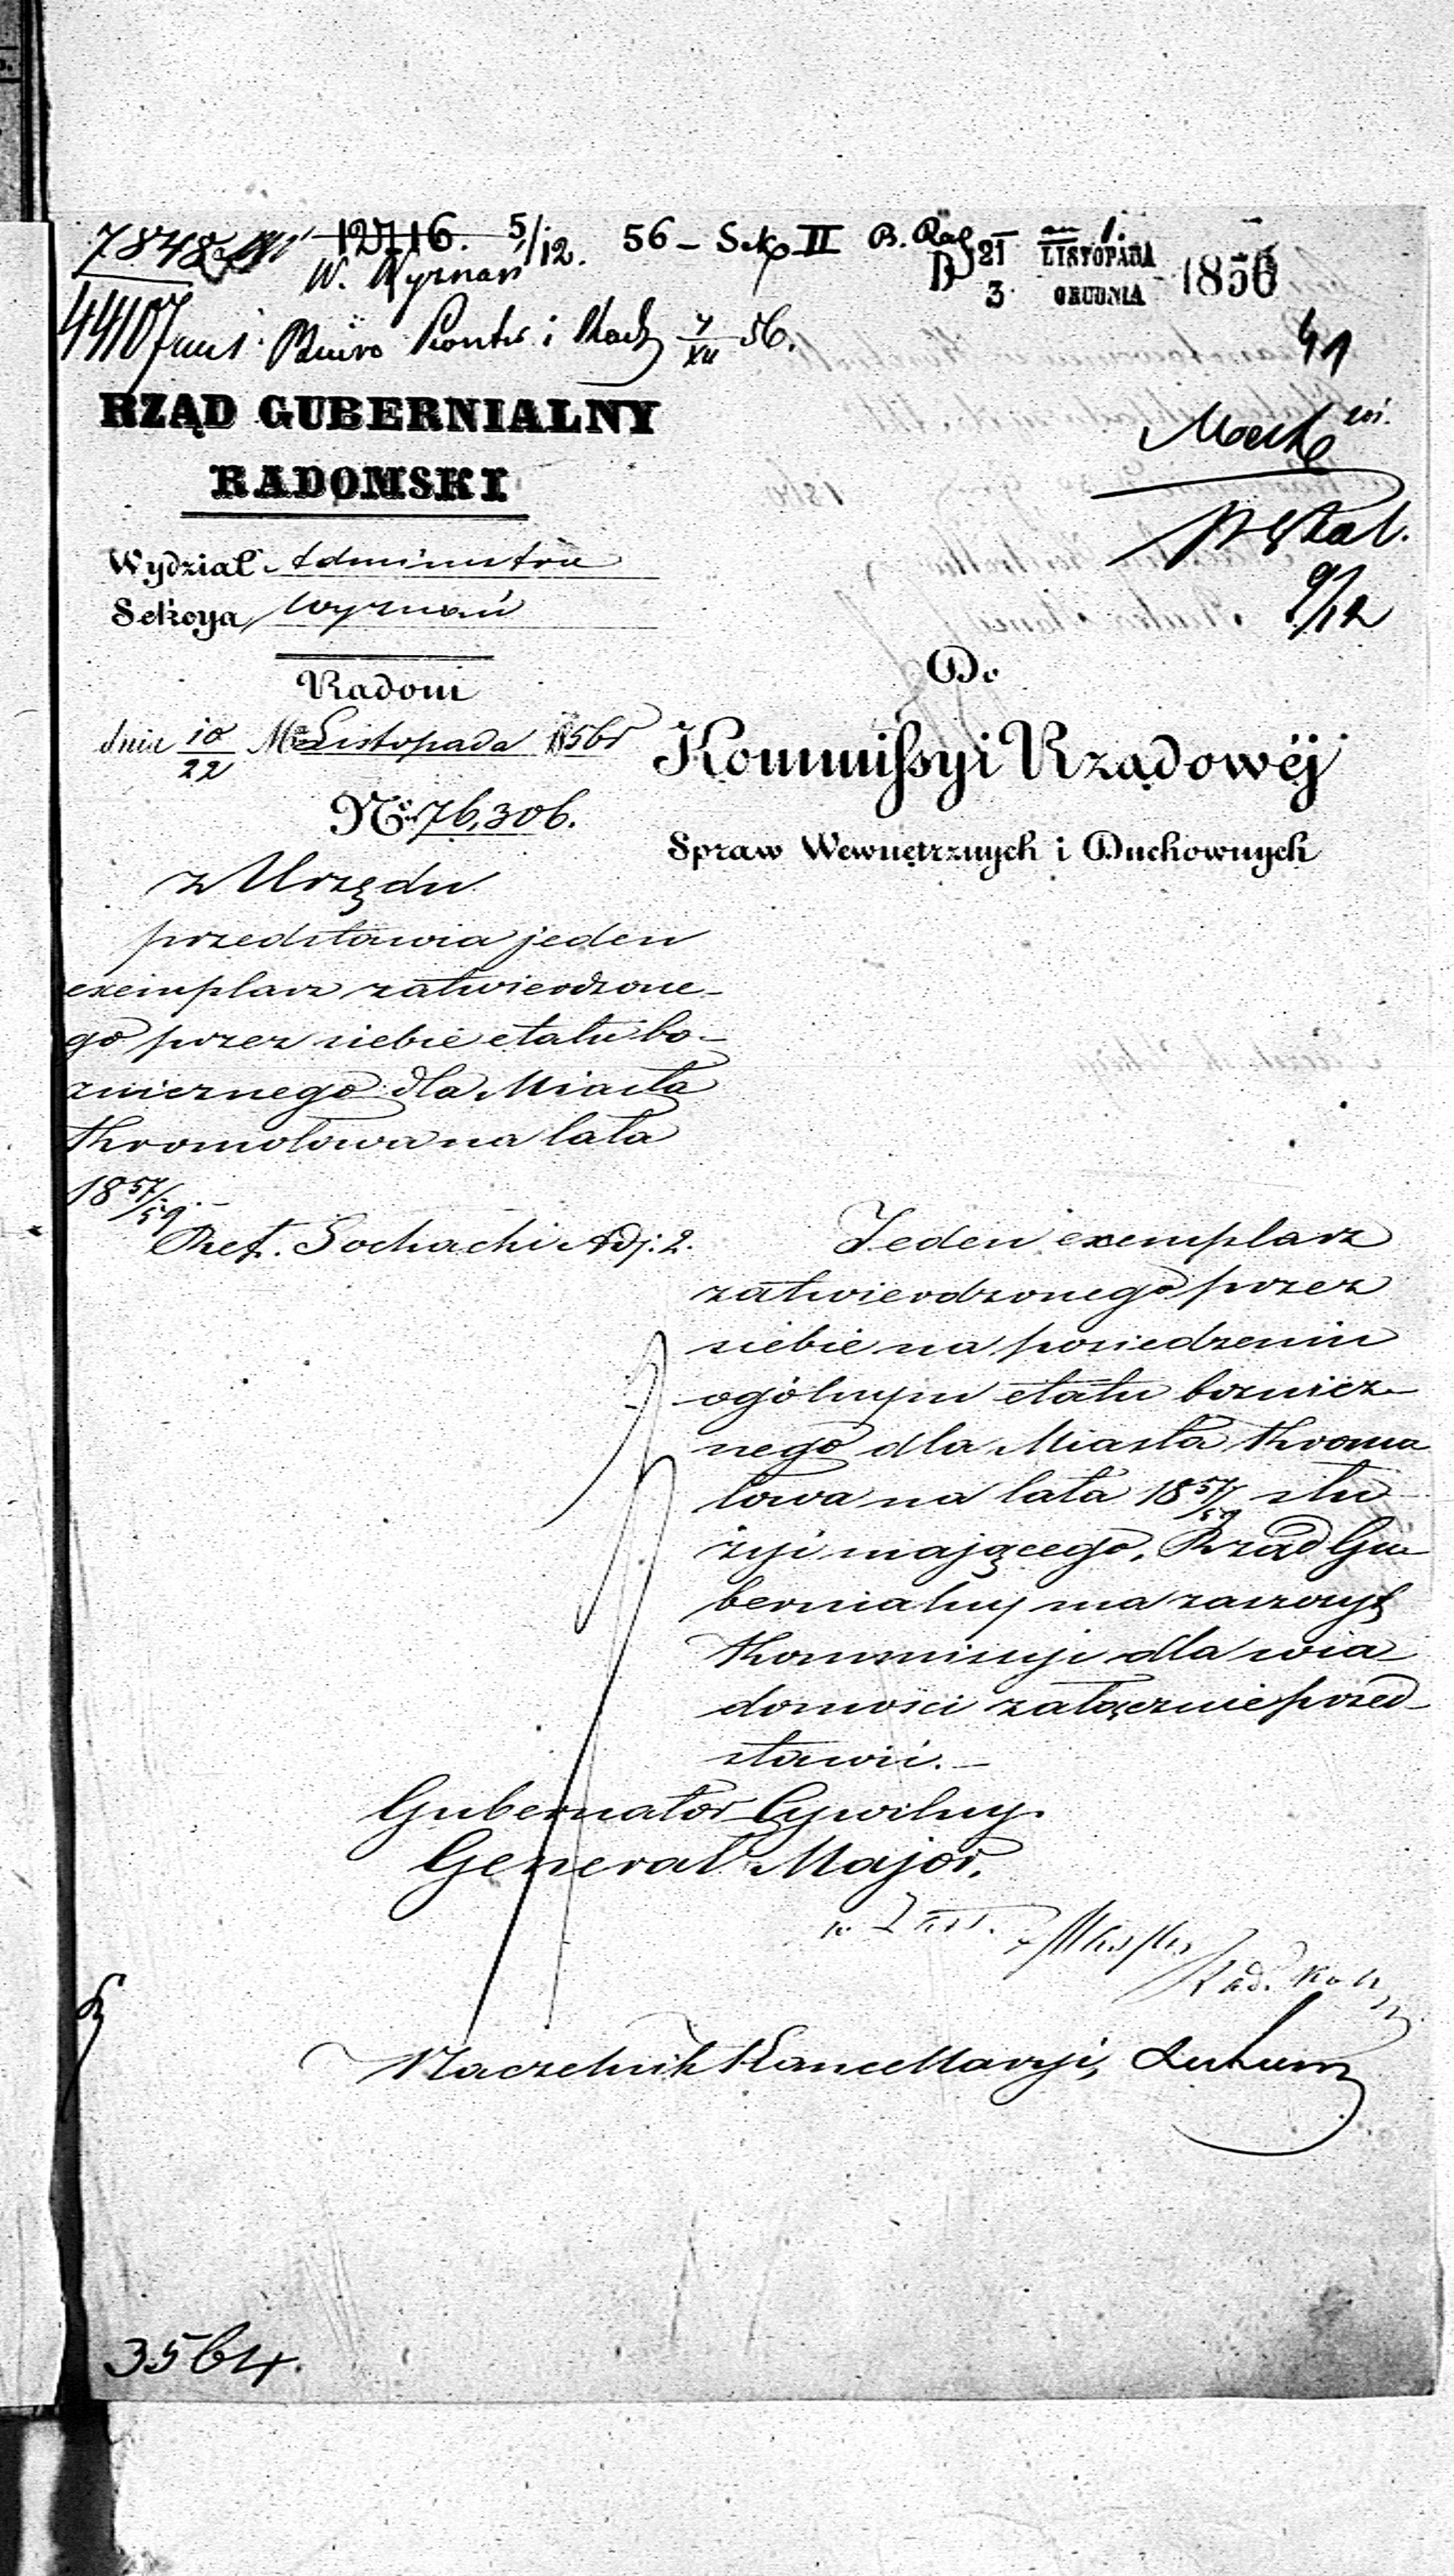 7848
12716. 5/12. 56 – Sek II B. Rach
W. Wyznań
D 21 LISTOPADA 1856
3 GRUDNIA
44107 Biuro Kontr i Rach 4/XII 56.
41
RZĄD GUBERNIALNY
RADOMSKI
Wydział Administra
Sekcya Wyznań
9/12
Radom
dnia 10/22 Mca Listopada 1856 r
No 76,306.
Do
Kommissyi Rządowéj
Spraw Wewnętrznych i Duchownych
z Urzędu
przedstawia jeden
exemplarz zatwierdzone-
go przez siebie etatu bo-
znicznego dla Miasta
Kromołowa na lata
18 57/59. –
Ref. Sochacki Adj: 2.
Jeden exemplarz
zatwierdzonego przez
siebie na posiedzeniu
ogólnym etatu boznicz-
nego dla Miasta Kromo
łowa na lata 18 57/59 słu
żyć mającego, Rząd Gu
bernialny ma zaszczyt
Kommissyi dla wia
domości załącznie przed-
stawić. –
Gubernator Cywilny.
Generał Major.
w Zast.
Naczelnik Kancellaryi,
3564.